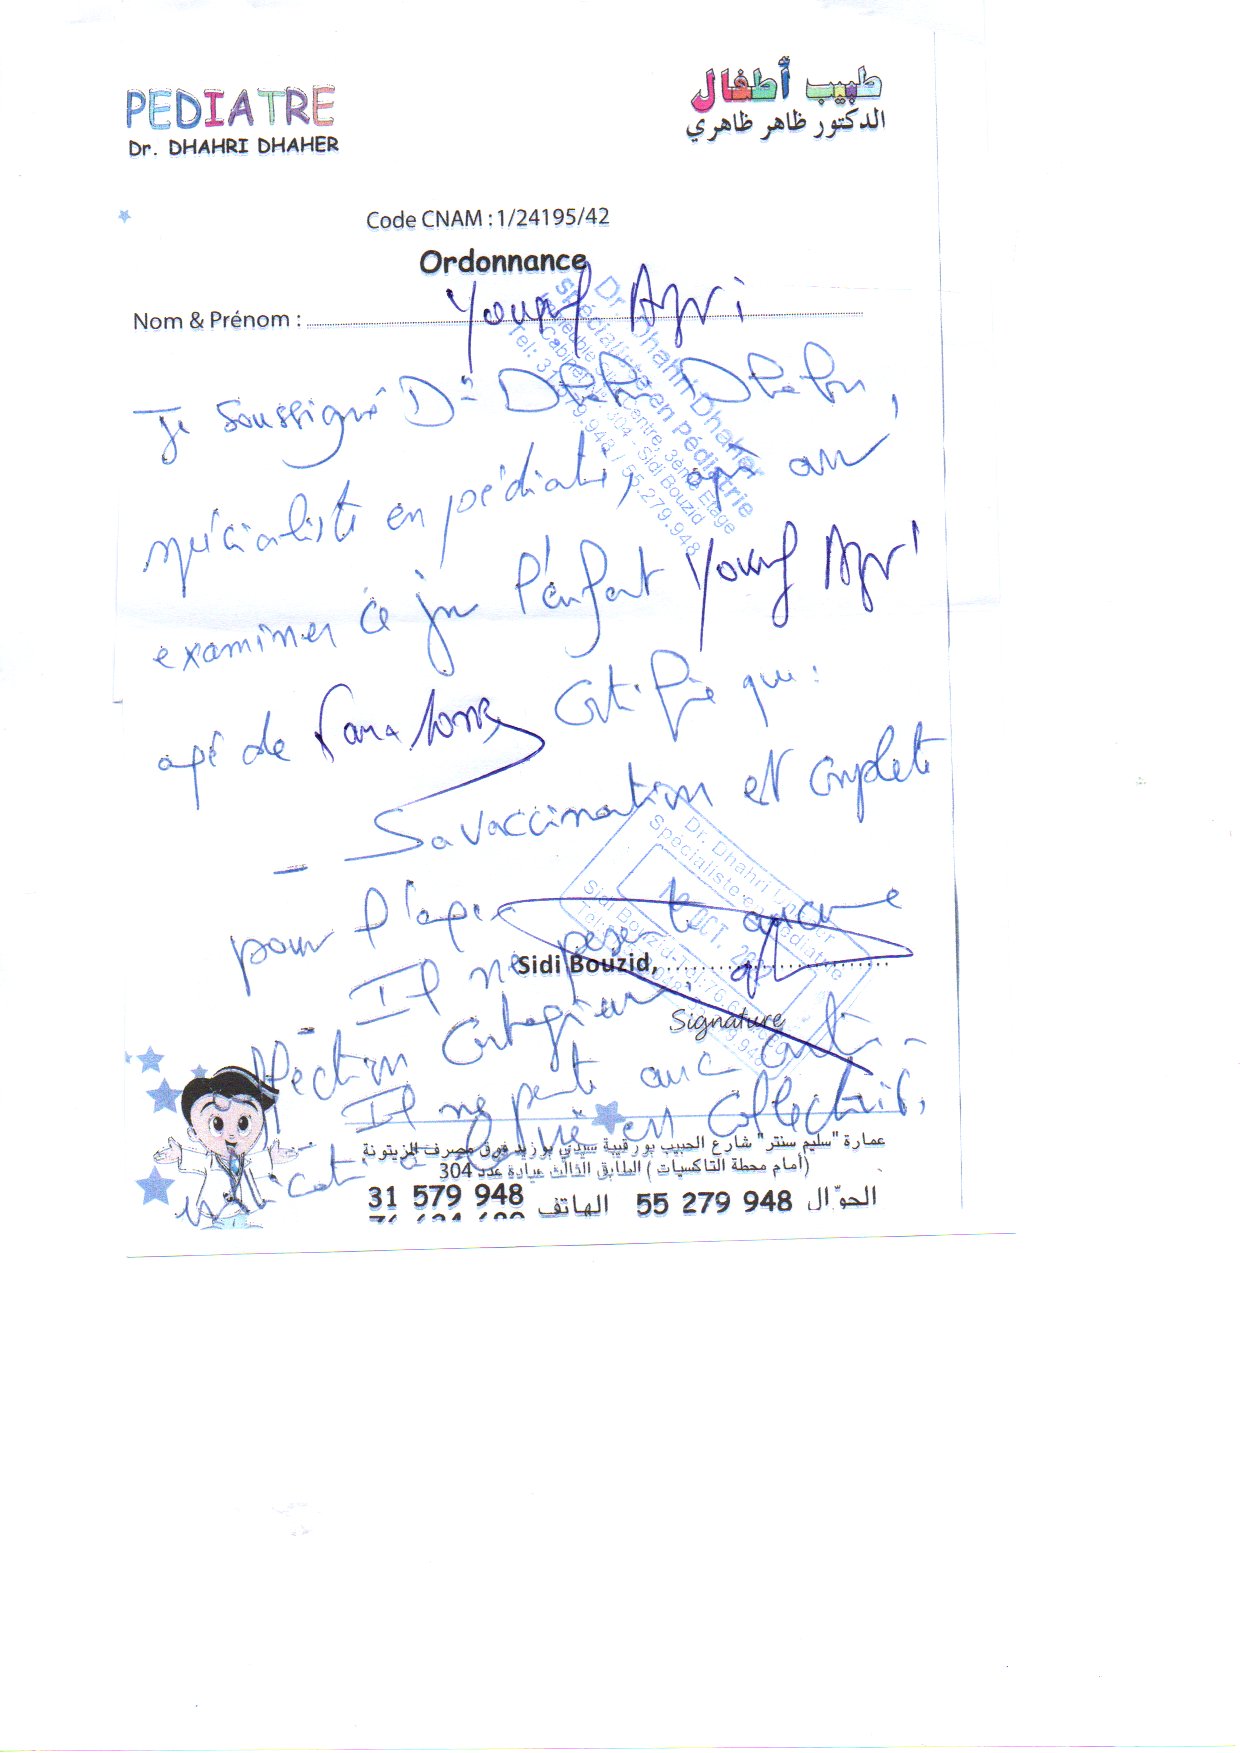 PEDIATRE
Dr. DHAHRI DHAHER
طبيب أطفال
الدكتور ظاهر ظاهري
Code CNAM : 1/24195/42
Ordonnance
Nom & Prénom :
Je soussigné Dr Dhahri Dhaher,
spécialiste en pédiatrie, après avoir
examiner ce jour l'enfant
agé de certifie que :
- Sa vaccination est complete
pour l'age
- Il ne présente aucune
affection contagieuse
Il ne présente aucune contre-
indication à la vie en collectivité.
Dr. Dhahri Dhaher
Spécialiste en Pédiatrie
Centre, 3ème Etage
304 - Sidi Bouzid
Tel: 31.579.948 / 55.279.948
Dr. Dhahri Dhaher
Spécialiste en Pédiatrie
OCT.
Sidi Bouzid
Sidi Bouzid, ..............................
Signature
عمارة "سليم سنتر" شارع الحبيب بورقيبة سيدي بوزيد فوق مصرف الزيتونة
(أمام محطة التاكسيات) الطابق الثالث عيادة عدد 304
الجوّال 55 279 948 الهاتف 31 579 948